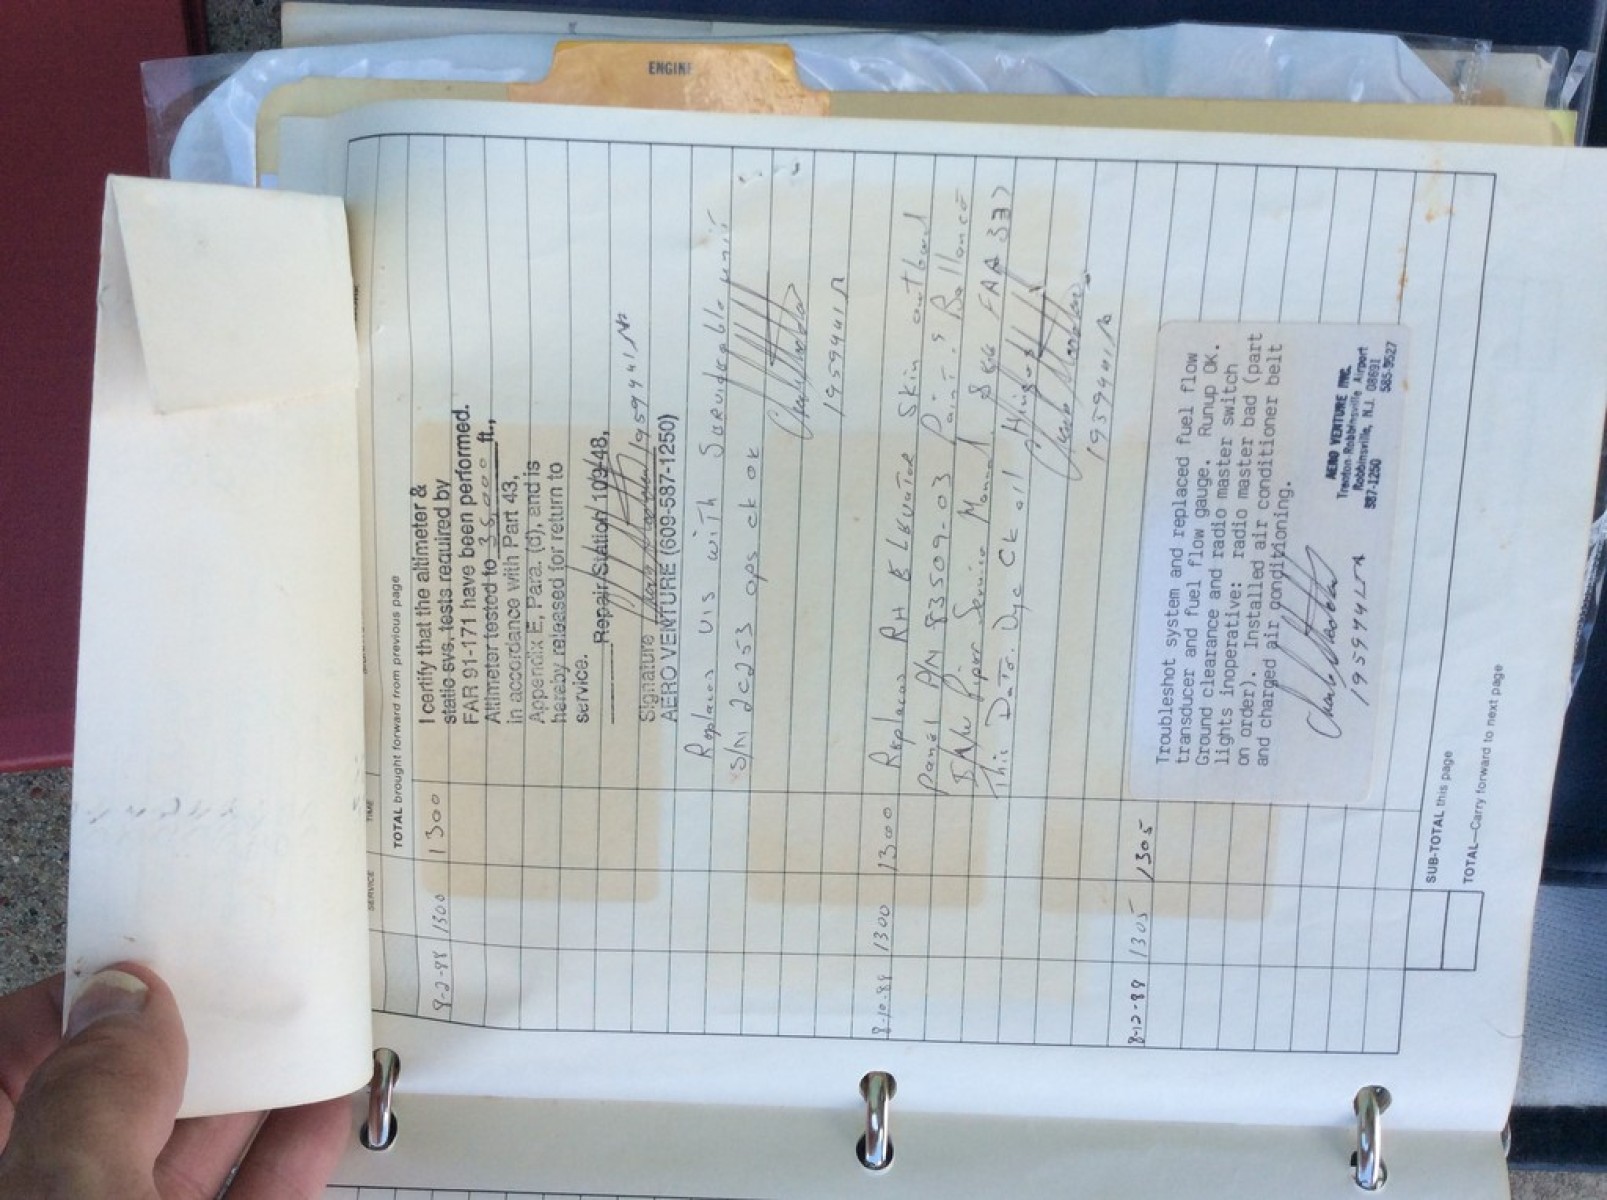 ENGINE
SERVICE
TIME
TOTAL brought forward from previous page
8-2-88 1300 1300
I certify that the altimeter &
static sys. tests required by
FAR 91-171 have been performed.
Altimeter tested to 35,000 ft.,
in accordance with Part 43,
Appendix E, Para. (d), and is
hereby released for return to
service.
Repair Station 109-48,
Signature 1959441 IA
AERO VENTURE (609-587-1250)
Replaced with Serviceable unit
S/N 2c253 ops ck ok
1959441 IA
8-10-88 1300 1300
Replaced RH Elevator Skin outboard
Panel P/N 83509-03 Paint & Ballance
I/AW Piper Service Manual. See FAA 337
This Date. Dye Ck all Hinges
1959441 IA
8-12-88 1305 1305
Troubleshot system and replaced fuel flow
transducer and fuel flow gauge. Runup OK.
Ground clearance and radio master switch
lights inoperative: radio master bad (part
on order). Installed air conditioner belt
and charged air conditioning.
1959441 IA
AERO VENTURE INC.
Trenton Robbinsville Airport
Robbinsville, N.J. 08691
587-1250 585-9527
SUB-TOTAL this page
TOTAL—Carry forward to next page